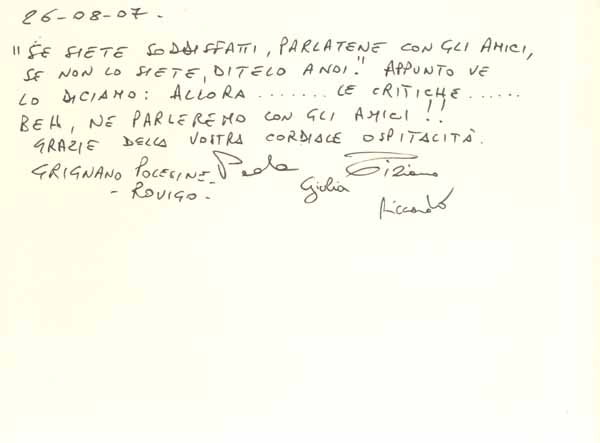 26-08-07.
"SE SIETE SODDISFATTI, PARLATENE CON GLI AMICI,
SE NON LO SIETE, DITELO A NOI." APPUNTO VE
LO DICIAMO: ALLORA ....... LE CRITICHE ......
BEH, NE PARLEREMO CON GLI AMICI!!
GRAZIE DELLA VOSTRA CORDIALE OSPITALITÀ.
GRIGNANO POLESINE - Paola Tiziano
- ROVIGO - Giulia
Riccardo